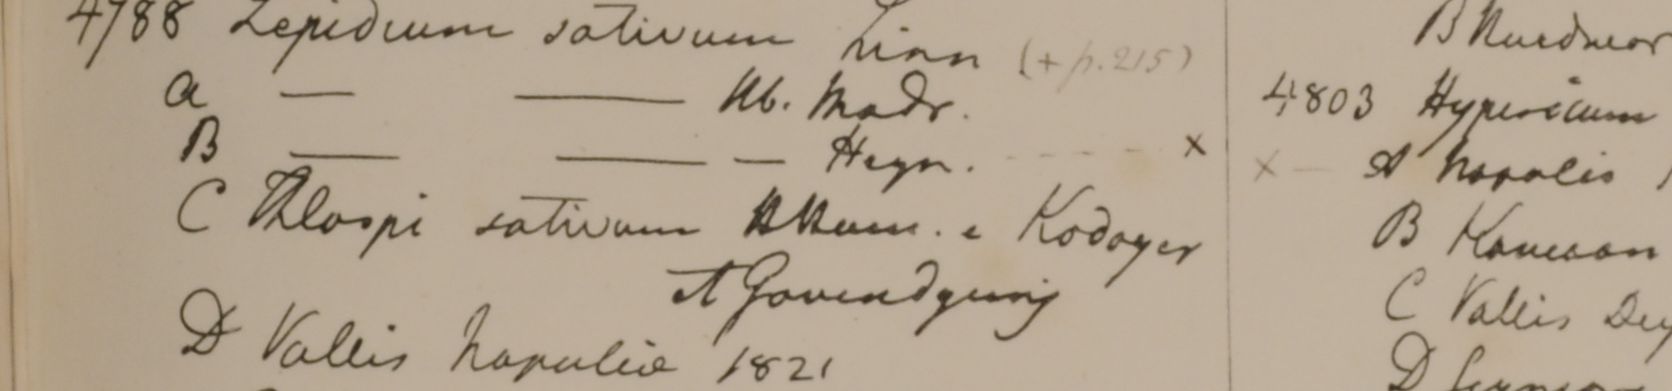 4788 Lepidium sativum Linn (+ p. 215)
a — — Hb. Madr.
B — — — Heyn. - - - - x
C Thlaspi sativum H Ham. e Kodager
A Govindgunj
D Vallis Napaliae 1821
4803 Hypericum
x — A Napalis
B Kamaon
C Vallis
D